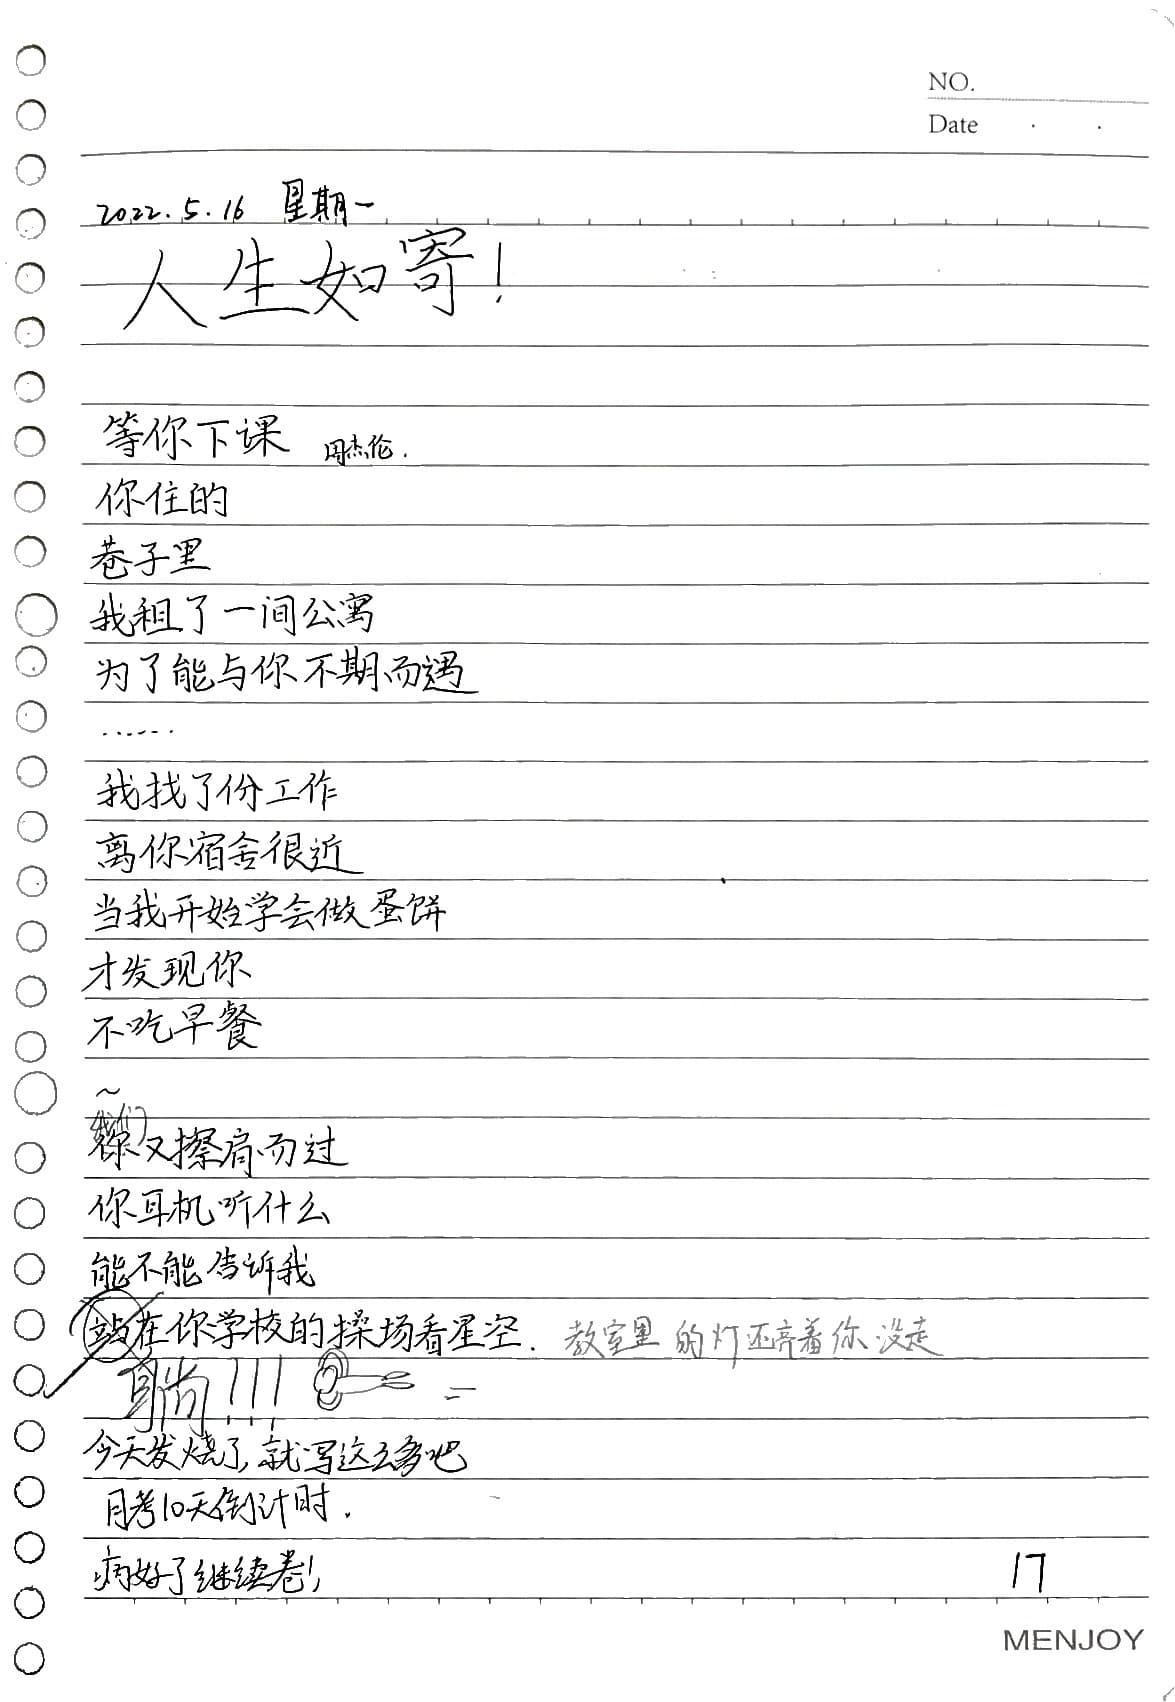 NO.
Date
2022.5.16 星期一
人生如寄!
等你下课 周杰伦.
你住的
巷子里
我租了一间公寓
为了能与你不期而遇
......
我找了份工作
离你宿舍很近
当我开始学会做蛋饼
才发现你
不吃早餐
~
我们
你又擦肩而过
你耳机听什么
能不能告诉我
站在你学校的操场看星空. 教室里的灯还亮着你没走
躺!!!
今天发烧了,就写这么多吧
月考10天倒计时.
病好了继续卷!
17
MENJOY